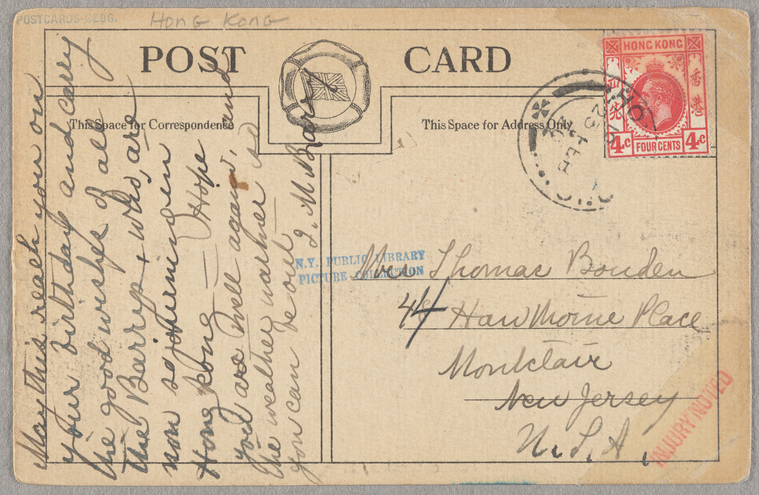 POSTCARDS-BLDG.
Hong Kong
POST CARD
This Space for Correspondence
This Space for Address Only
HONG KONG
香港
FOUR CENTS
4c
4c
FEB
May this reach you on
your birthday and carry
the good wishes of all
the Barrys, who are
now sojourning in
Hong Kong — Hope
you are well again, and
the weather warmer so
you can be out
J. M. Barry
N.Y. PUBLIC LIBRARY
PICTURE COLLECTION
Mrs Thomas Bouden
44 Hawthorne Place
Montclair
New Jersey
U.S.A.
INJURY NOTED